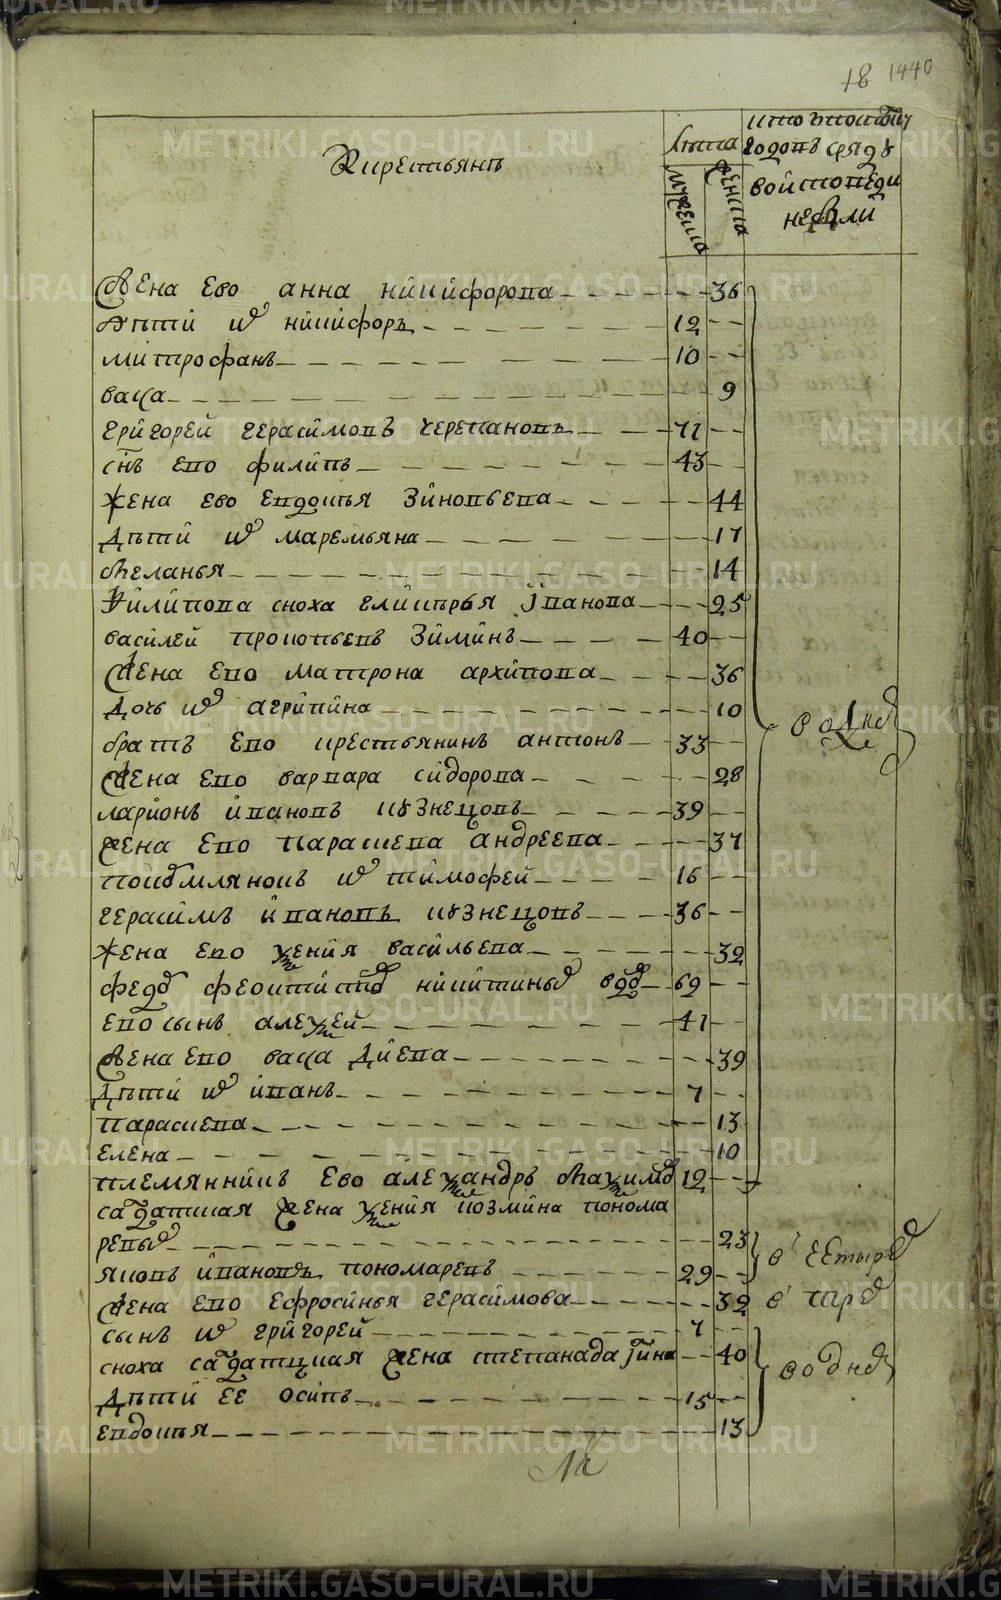 18 1440
Крестьянъ
Лѣта
мужеска
женска
кто в которой
годовъ сряду
во исповеди
не были
Жена Ево анна никифорова 36
Дѣти их никифоръ 12
митрофанъ 10
васса 9
григорей герасимовъ черепановъ 71
снъ ево филипъ 43
жена ево евдокья Зиновьева 44
Дѣти их маремьяна 17
Меланья 14
Филипова сноха гликѣрья Iванова 25
василей прокопьевъ Зиминъ 40
Жена ево матрона архипова 36
Дочь их агрипина 10
братъ ево крестьянинъ антонъ 33
Жена ево варвара сидорова 28
ларионъ ивановъ кузнецовъ 39
жена ево параскева андреева 37
племянникъ их тимофей 16
герасимъ ивановъ кузнецовъ 36
жена ево ксения васильева 32
федор феоктистов никитиных вдов 69
ево сынъ алексей 41
Жена ево васса Диева 39
Дѣти их иванъ 7
параскева 13
елена 10
племянникъ Ево александръ Максимов 12
салдатская жена ксения козмина понома
ревых 23
яковъ ивановъ пономаревъ 29
Жена ево ефросинья герасимова 32
сынъ их григорей 7
сноха салдатцкая жена степанада Iина 40
Дѣти ее осипъ 15
евдокья 13
в однех
в четырех
в трех
в однех